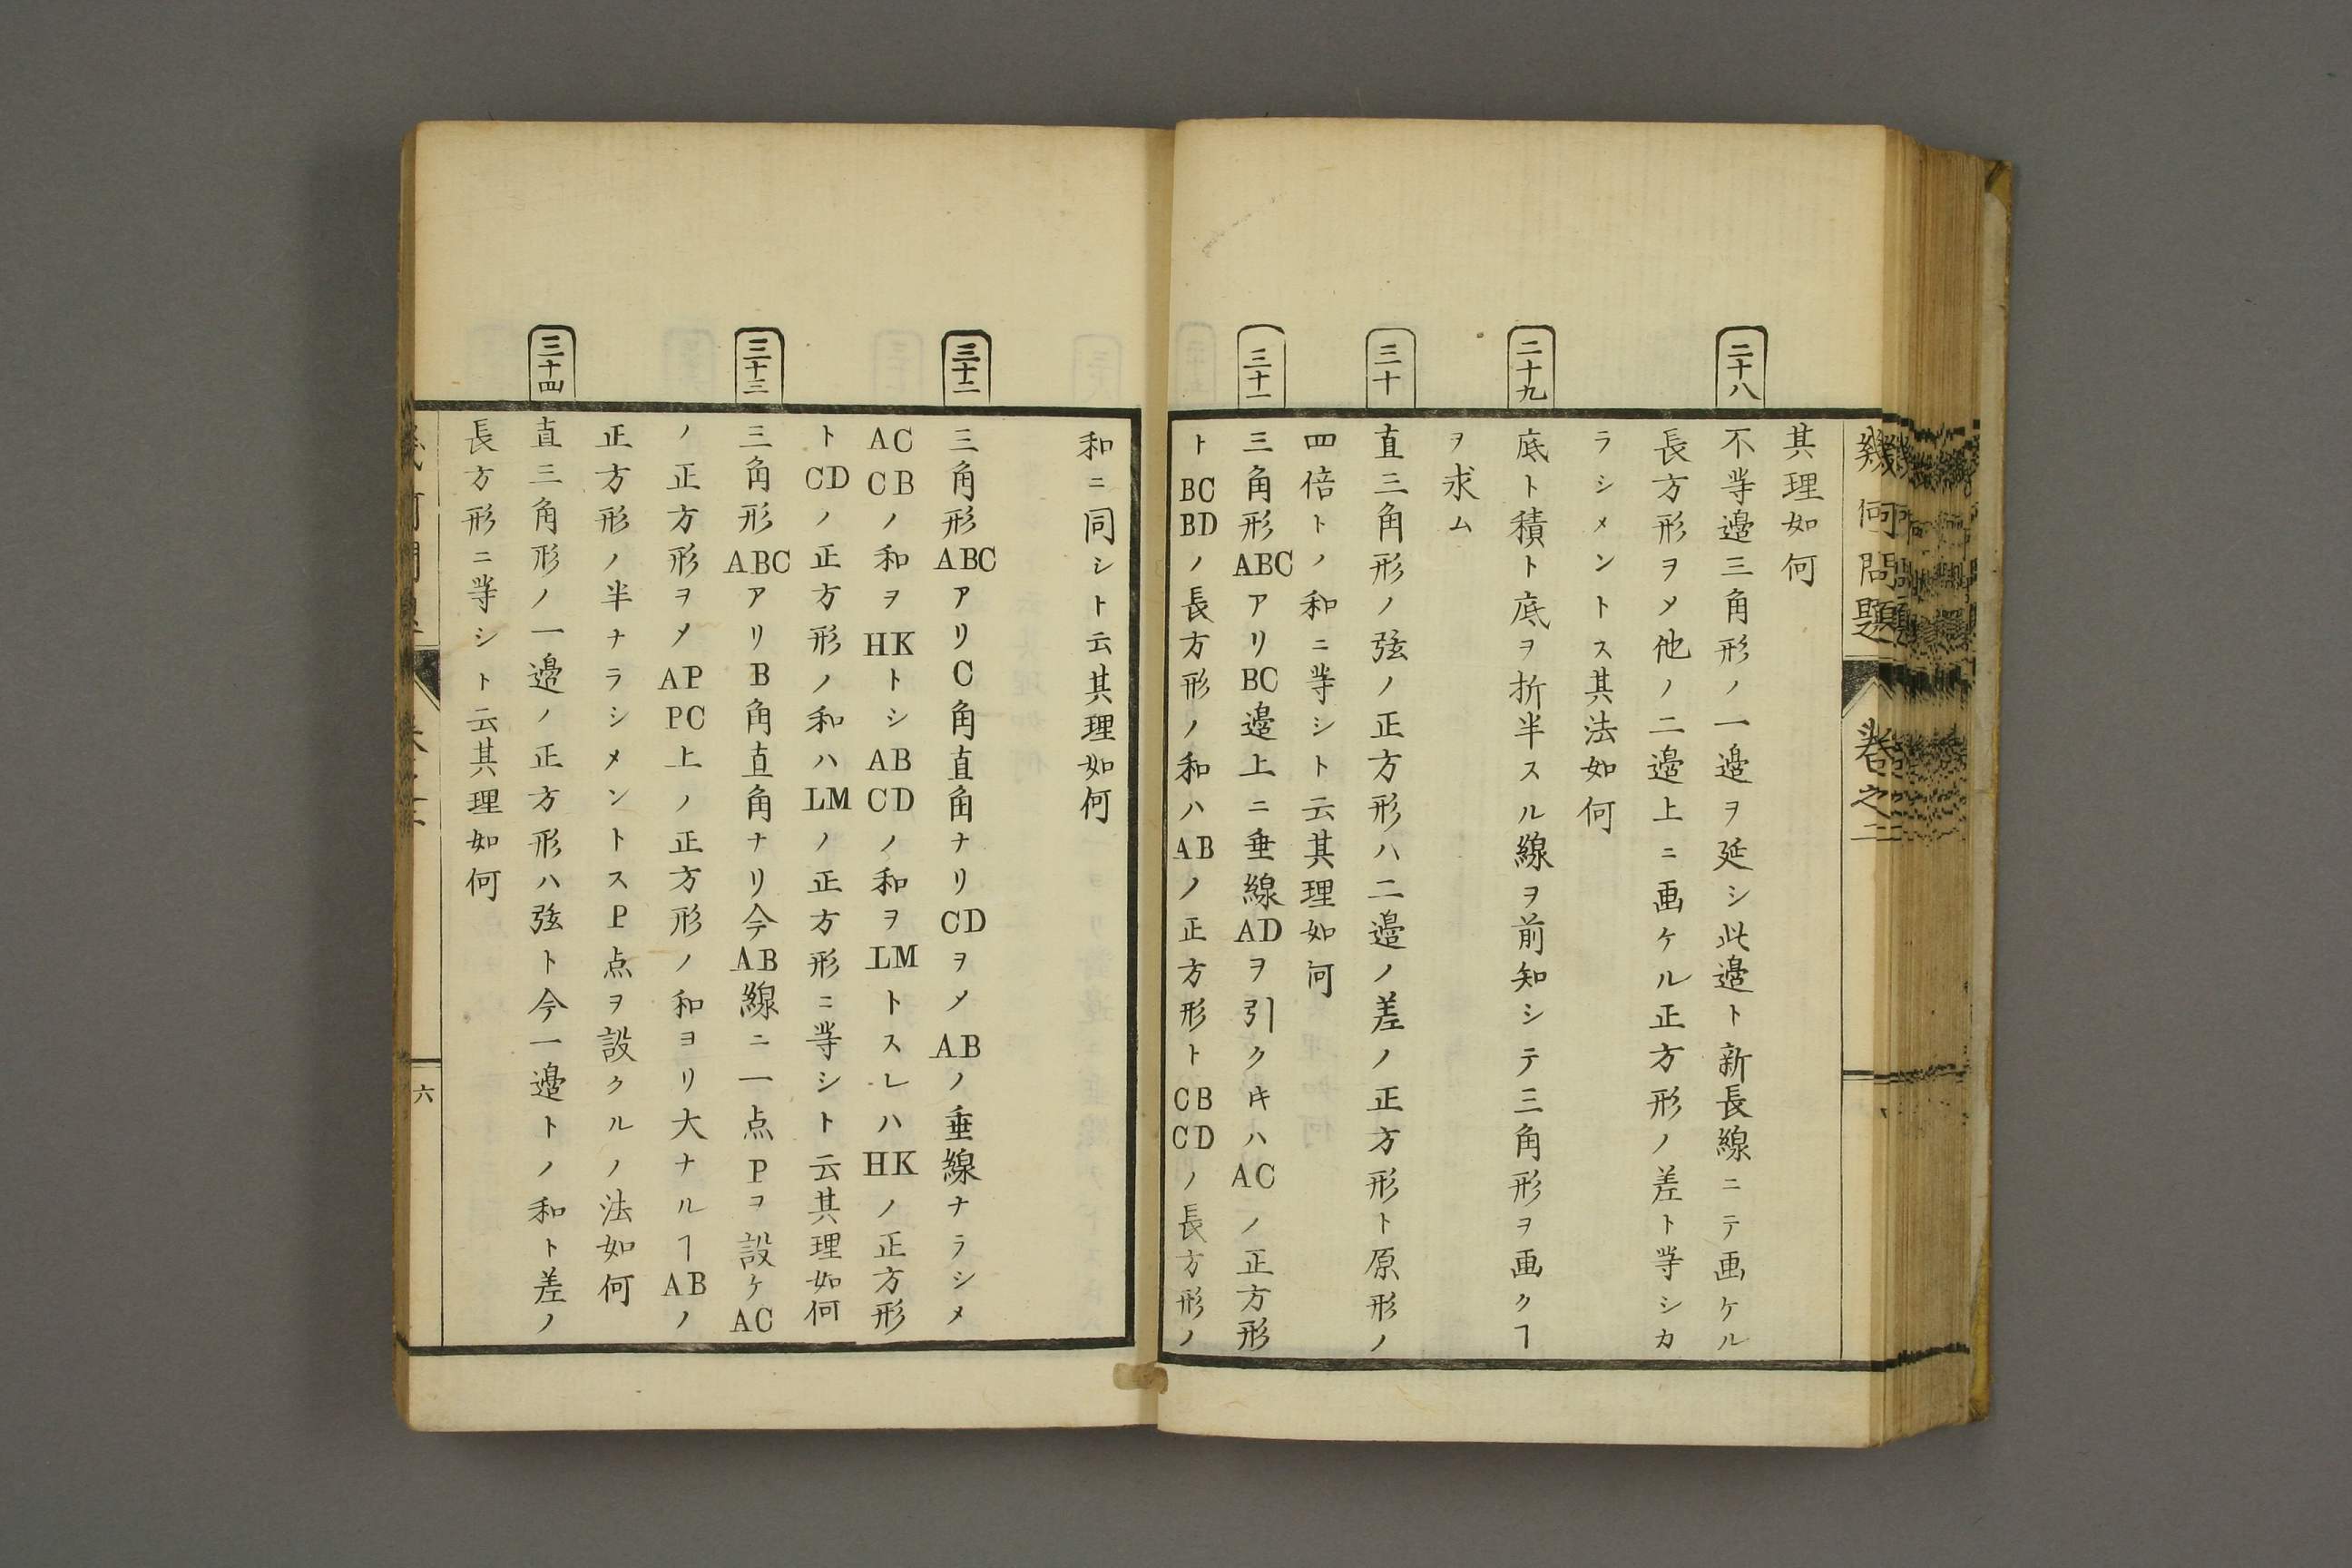 幾何問題
卷之二
其理如何
二十八
不等邉三角形ノ一邉ヲ延シ此邉ト新長線ニテ画ケル
長方形ヲメ他ノ二邉上ニ画ケル正方形ノ差ト等シカ
ラシメントス其法如何
二十九
底ト積ト底ヲ折半スル線ヲ前知シテ三角形ヲ画クヿ
ヲ求ム
三十
直三角形ノ弦ノ正方形ハ二邉ノ差ノ正方形ト原形ノ
四倍トノ和ニ等シト云其理如何
三十一
三角形ABCアリBC邉上ニ垂線ADヲ引クキハACノ正方形
トBC BDノ長方形ノ和ハABノ正方形トCB CDノ長方形ノ
和ニ同シト云其理如何
三十二
三角形ABCアリC角直角ナリCDヲメABノ垂線ナラシメ
AC CBノ和ヲHKトシAB CDノ和ヲLMトスレハHKノ正方形
トCDノ正方形ノ和ハLMノ正方形ニ等シト云其理如何
三十三
三角形ABCアリB角直角ナリ今AB線ニ一点Pヲ設ケAC
ノ正方形ヲメAP PC上ノ正方形ノ和ヨリ大ナルヿABノ
正方形ノ半ナラシメントスP点ヲ設クルノ法如何
三十四
直三角形ノ一邉ノ正方形ハ弦ト今一邉トノ和ト差ノ
長方形ニ等シト云其理如何
六